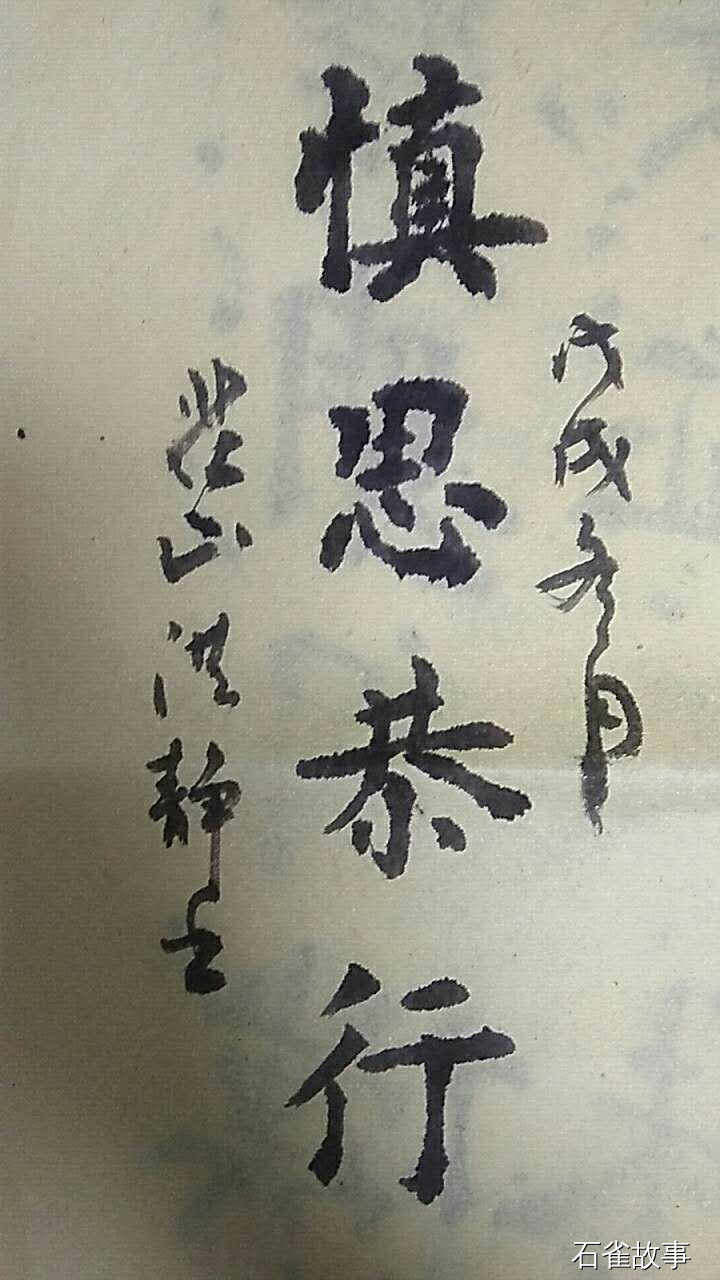 戊戌冬月
慎思恭行
茌山洪静
石雀故事